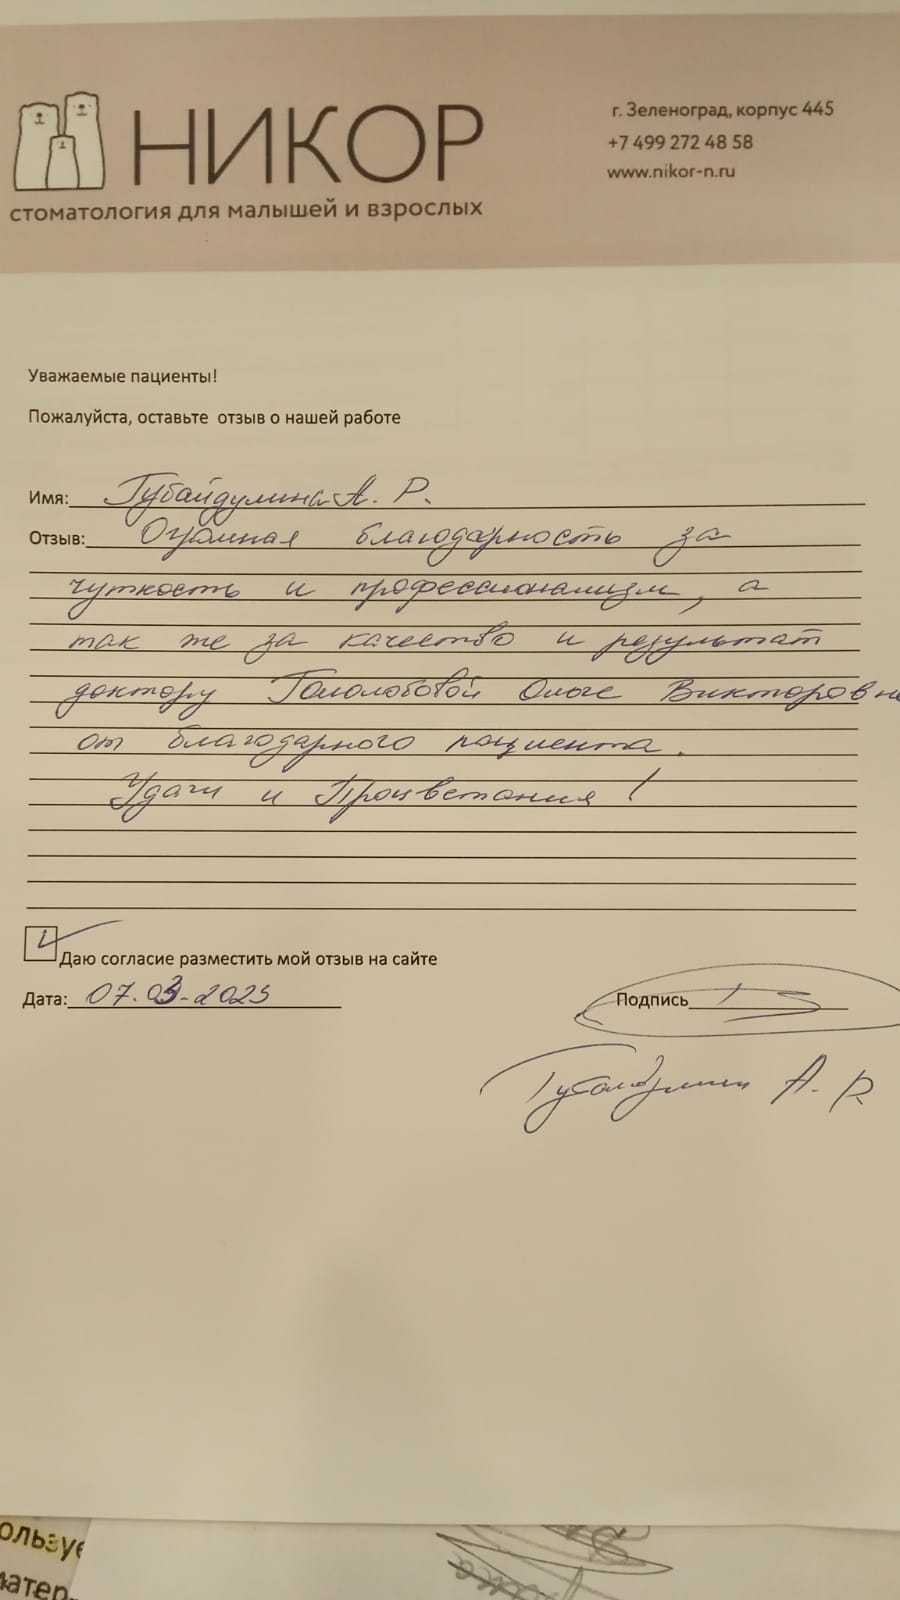 НИКОР
стоматология для малышей и взрослых
г. Зеленоград, корпус 445
+7 499 272 48 58
www.nikor-n.ru
Уважаемые пациенты!
Пожалуйста, оставьте отзыв о нашей работе
Имя: Губайдулина А. Р.
Отзыв: Огромная благодарность за
чуткость и профессионализм, а
так же за качество и результат
доктору Гололобовой Ольге Викторовне
от благодарного пациента.
Удачи и Процветания!
Даю согласие разместить мой отзыв на сайте
Дата: 07.03.2025
Подпись
А. Р.